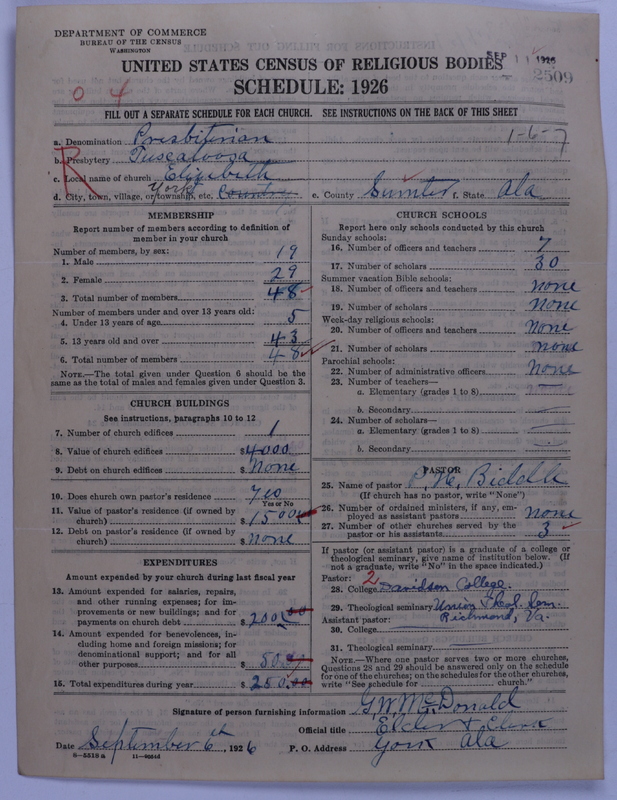 DEPARTMENT OF COMMERCE
BUREAU OF THE CENSUS
WASHINGTON
SEP 11 1926
2509
UNITED STATES CENSUS OF RELIGIOUS BODIES
SCHEDULE: 1926
0 4
FILL OUT A SEPARATE SCHEDULE FOR EACH CHURCH. SEE INSTRUCTIONS ON THE BACK OF THIS SHEET
R
a. Denomination Presbiterian 1-6-7
b. Presbytery Tuscalooza
c. Local name of church Elizabeth
d. City, town, village, or township, etc. York Country e. County Sumter f. State Ala
MEMBERSHIP
Report number of members according to definition of
member in your church
Number of members, by sex:
1. Male 19
2. Female 29
3. Total number of members 48
Number of members under and over 13 years old:
4. Under 13 years of age 5
5. 13 years old and over 43
6. Total number of members 48
NOTE.—The total given under Question 6 should be
same as the total of males and females given under Question 3.
CHURCH BUILDINGS
See instructions, paragraphs 10 to 12
7. Number of church edifices 1
8. Value of church edifices $4000
9. Debt on church edifices $ None
10. Does church own pastor's residence yes
Yes or No
11. Value of pastor's residence (if owned by
church) $1500
12. Debt on pastor's residence (if owned by
church) $ none
EXPENDITURES
Amount expended by your church during last fiscal year
13. Amount expended for salaries, repairs,
and other running expenses; for im-
provements or new buildings; and for
payments on church debt $ 200.00
14. Amount expended for benevolences, in-
cluding home and foreign missions; for
denominational support; and for all
other purposes $ 50.00
15. Total expenditures during year $ 250.00
CHURCH SCHOOLS
Report here only schools conducted by this church
Sunday schools:
16. Number of officers and teachers 7
17. Number of scholars 30
Summer vacation Bible schools:
18. Number of officers and teachers none
19. Number of scholars None
Week-day religious schools:
20. Number of officers and teachers none
21. Number of scholars none
Parochial schools:
22. Number of administrative officers None
23. Number of teachers—
a. Elementary (grades 1 to 8)
b. Secondary
24. Number of scholars—
a. Elementary (grades 1 to 8)
b. Secondary
PASTOR
25. Name of pastor P. N. Biddle
(If church has no pastor, write "None")
26. Number of ordained ministers, if any, em-
ployed as assistant pastors none
27. Number of other churches served by the
pastor or his assistants 3
If pastor (or assistant pastor) is a graduate of a college or
theological seminary, give name of institution below. (If
not a graduate, write "No" in the space indicated.)
Pastor: 2
28. College Davidson College
29. Theological seminary Union Theol. Sem.
Assistant pastor: Richmond, Va.
30. College
31. Theological seminary
NOTE.—Where one pastor serves two or more churches,
Questions 28 and 29 should be answered only on the schedule
for one of the churches; on the schedules for the other churches,
write "See schedule for church."
Signature of person furnishing information G. W. McDonald
Official title Elder & Clerk
Date September 6th, 1926 P. O. Address York Ala